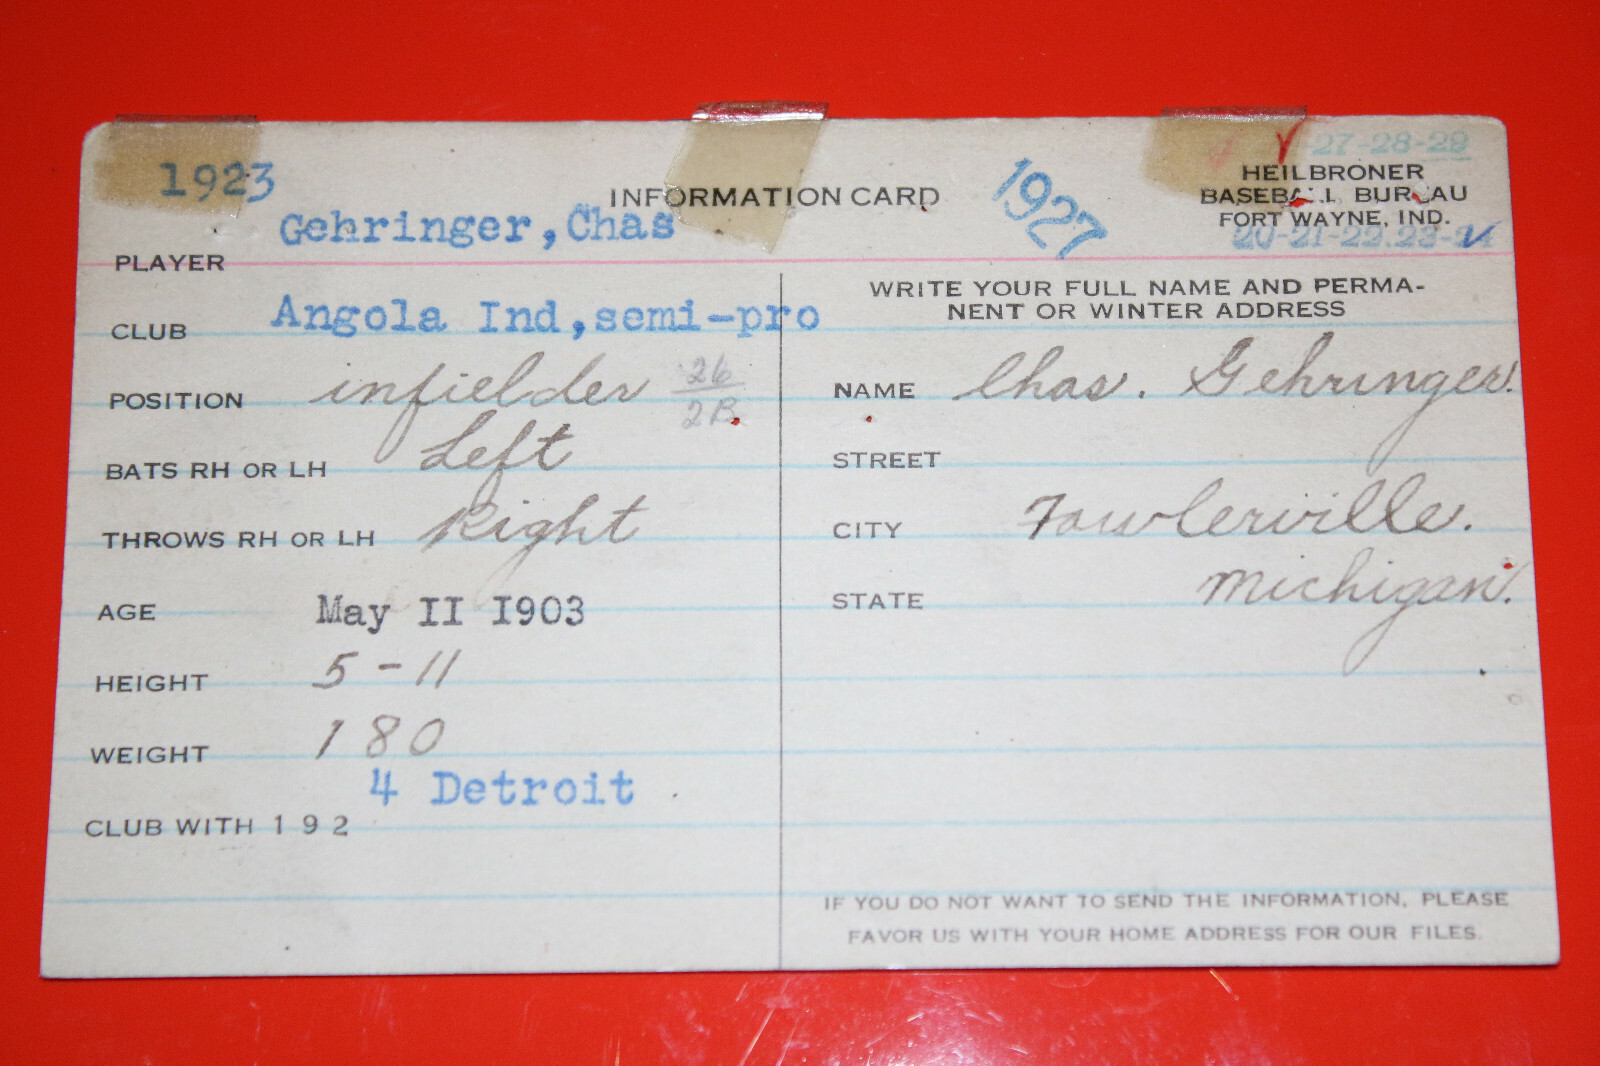 1923
INFORMATION CARD
1927
27-28-29
HEILBRONER
BASEBALL BUREAU
FORT WAYNE, IND.
20-21-22.23-24
PLAYER Gehringer,Chas
CLUB Angola Ind,semi-pro
POSITION infielder 26
2B
BATS RH OR LH Left
THROWS RH OR LH Right
AGE May II I903
HEIGHT 5-11
WEIGHT 180
4 Detroit
CLUB WITH 192
WRITE YOUR FULL NAME AND PERMA-
NENT OR WINTER ADDRESS
NAME Chas. Gehringer.
STREET
CITY Fowlerville.
STATE Michigan.
IF YOU DO NOT WANT TO SEND THE INFORMATION, PLEASE
FAVOR US WITH YOUR HOME ADDRESS FOR OUR FILES.